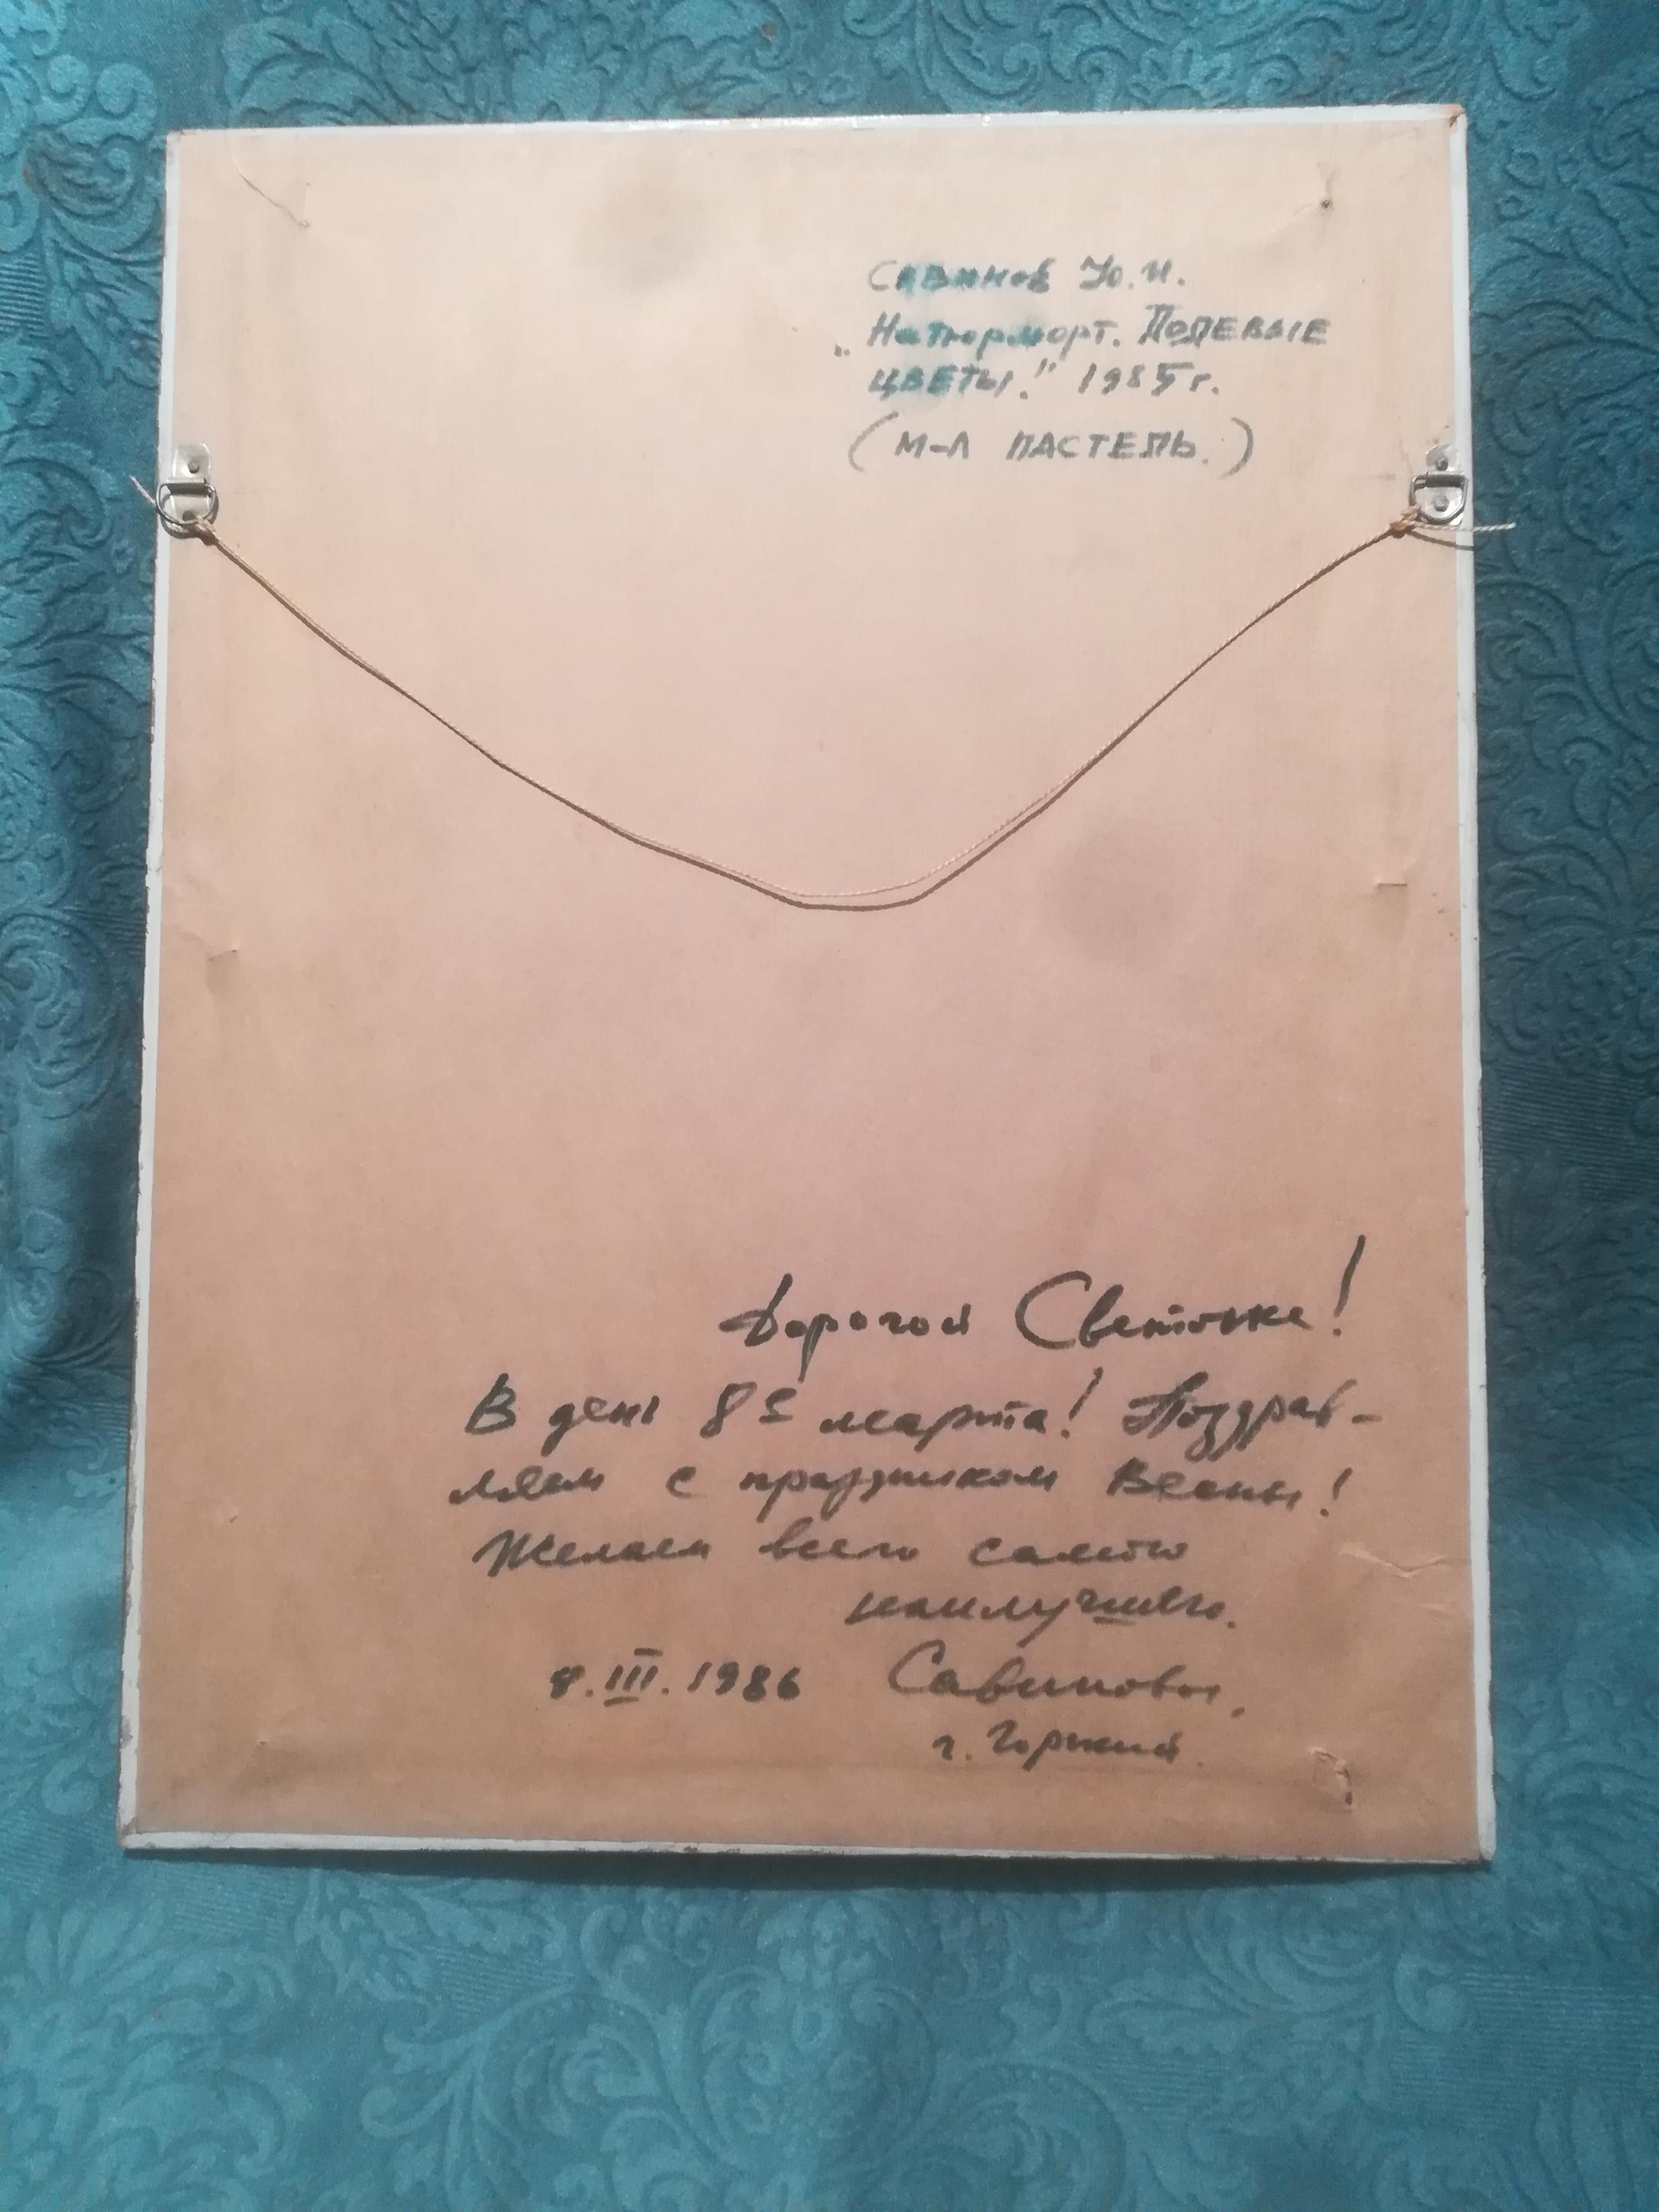 Савинов Ю.И.
„Натюрморт. Полевые
цветы." 1985 г.
(м-л пастель.)
Дорогой Светочке!
В день 8е марта! Поздрав-
ляем с праздником Весны!
Желаем всего самого
наилучшего.
8.III.1986 Савиновы.
г. Горький.